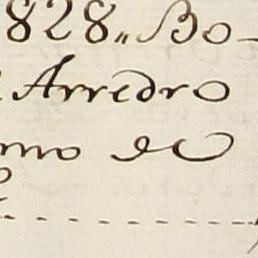 828,, Bo-
Arredro
mo de